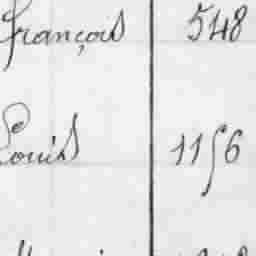 François 548
Louis 1156